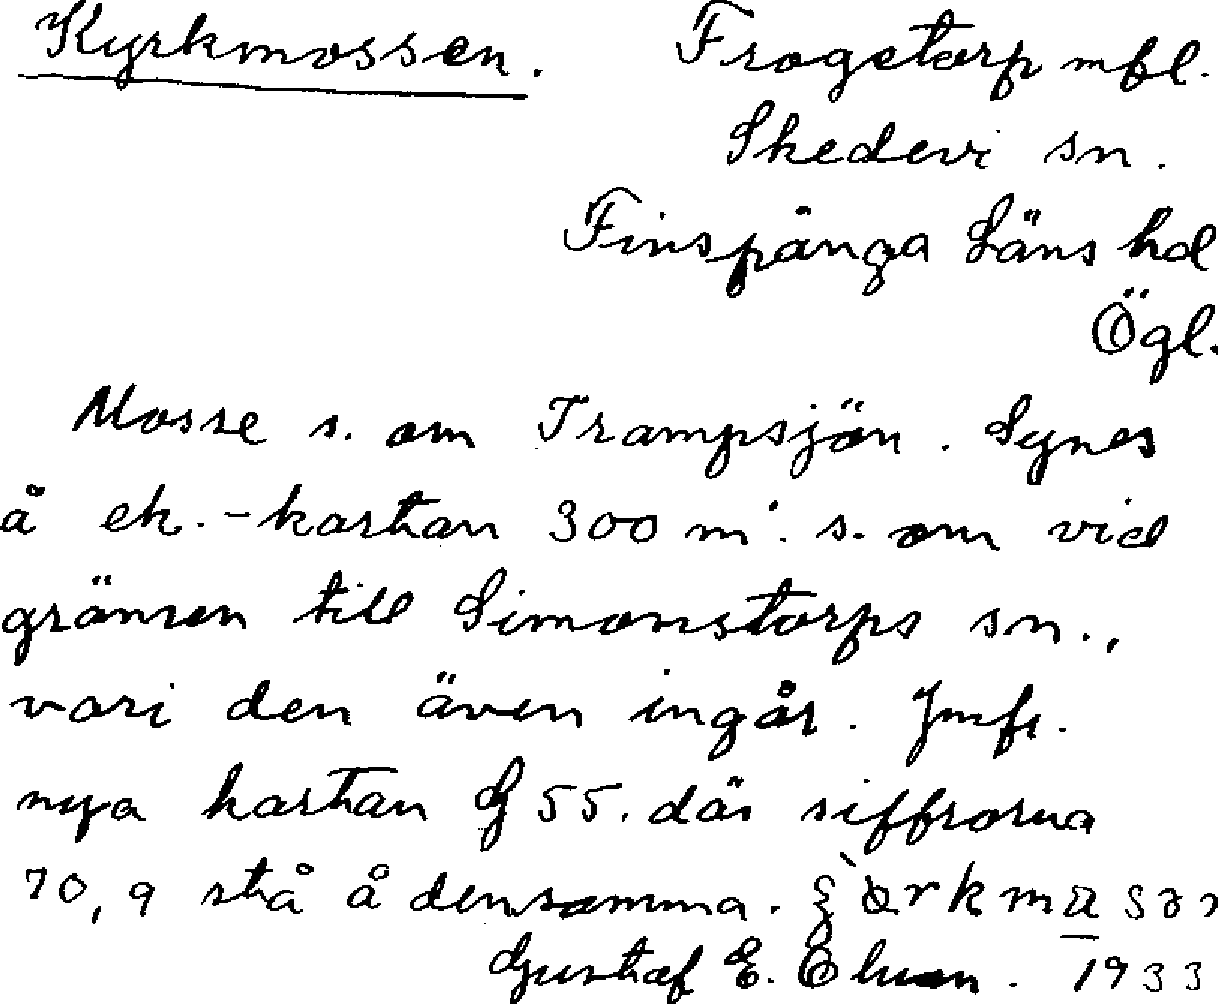 Kyrkmossen. Frogstorp mfl.
Skedevi sn.
Finspånga Läns hd
Ögl.
Mosse s. om Trampsjön. Synes
å ek.-kartan 300 m. s. om vid
gränsen till Simonstorps sn.,
vari den även ingår. Jmfr.
nya kartan G 55. där siffrorna
70,9 stå å densamma.
Gustaf E. 1933